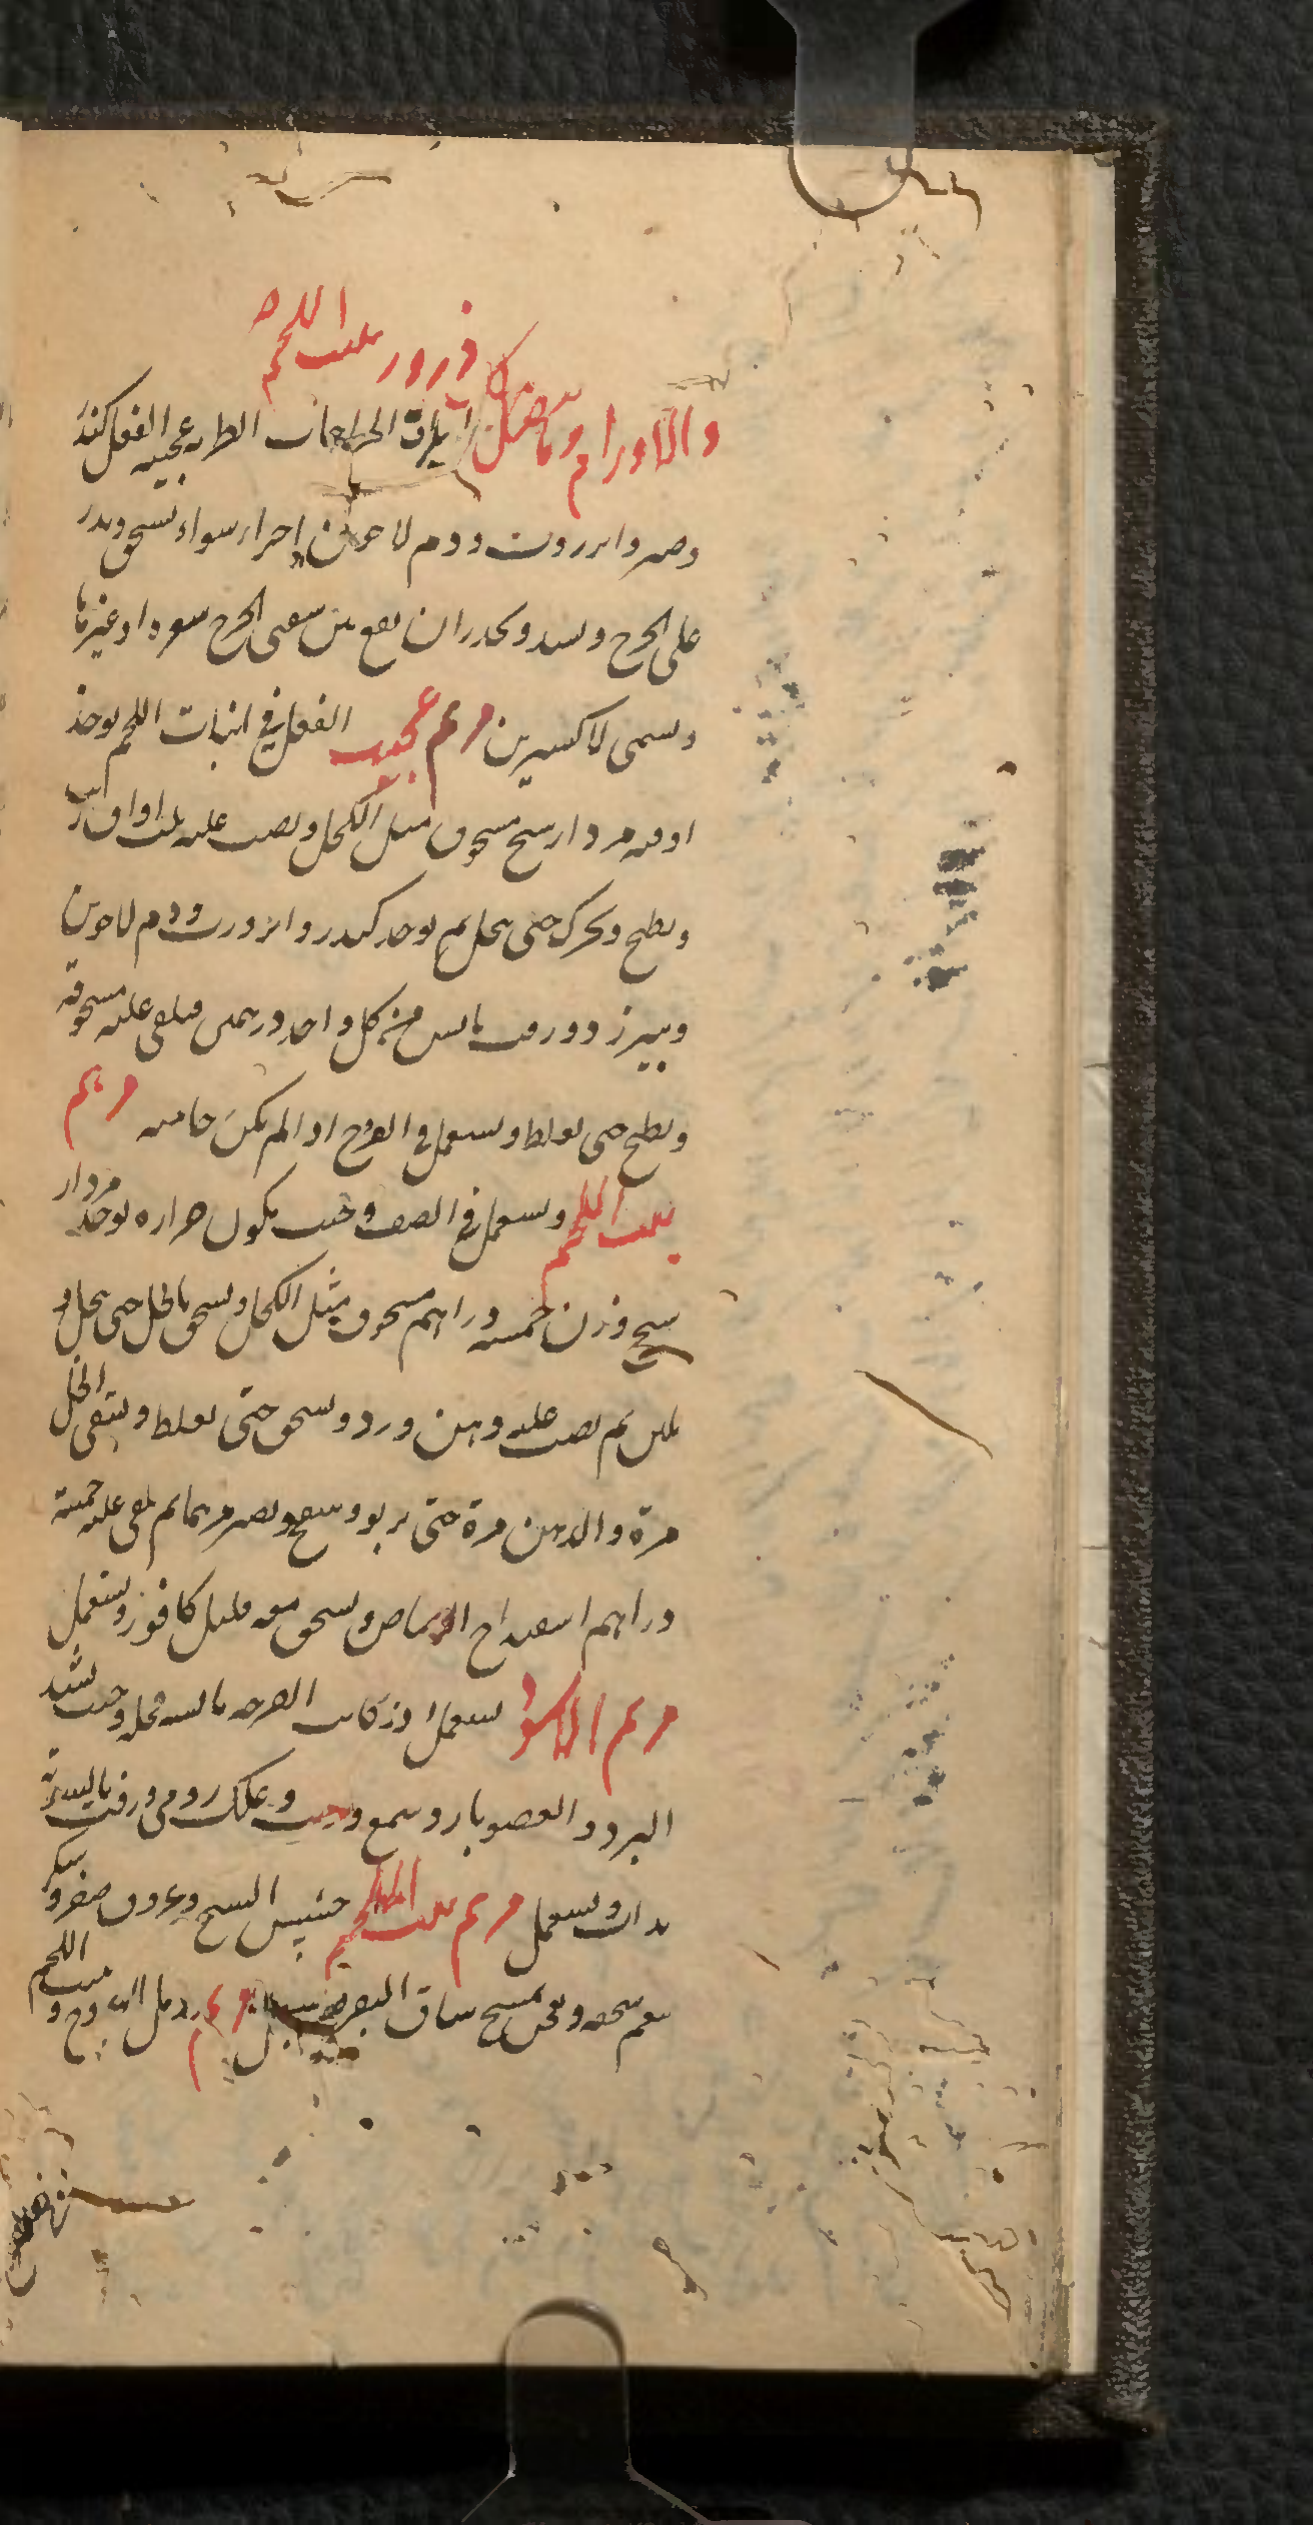 ذرور ينبت اللحم
والاورام وما هنالك يلزق الجراحات الطرية عجيب الفعل كندر
وصبر وانزروت ودم لاخوين اجزاء سواء يسحق ويذر
على الجرح ويشد ويحذر ان يقع بين شقتي الجرح شعرة او غيرها
ويسمى لاكسيرين مرهم عجيب الفعل في انبات اللحم يوخذ
اوقيه مرداسنج مسحوق مثل الكحل ويصب عليه ثلث اواق زيت
ويطبخ ويحرك حتى ينحل ثم يوخذ كندر وانزروت ودم لاخوين
وبيرزد وزفت يابس من كل واحد درهمين فيلقى عليه مسحوقه
ويطبخ حتى يغلظ ويستعمل في القروح اذا لم يكن حاميه مرهم
ينبت اللحم ويستعمل في الصيف وحيث يكون حراره يوخذ مردار
سنج وزن خمسه دراهم مسحوق مثل الكحل ويسحق بالخل حتى ينحل و
يلين ثم يصب عليه دهن ورد ويسحق حتى يغلظ ويسقى الخل
مرة والدهن مرة حتى يربو وينتفخ ويصير مرهما ثم يلقى عليه خمسة
دراهم اسفيداج الرصاص ويسحق معه قليل كافور ويستعمل
مرهم الاسود يستعمل اذا كانت القرحه يابسه قحله وحيث يشتد
البرد والعصب بارد شمع وزيت وعلك رومي وزفت بالسوية
يذاب ويستعمل مرهم ينبت اللحم وعروق صفر وسكر
ينعم سحقه ويعجن بمخ ساق البقر مرهم يدمل القروح و
ينبت اللحم